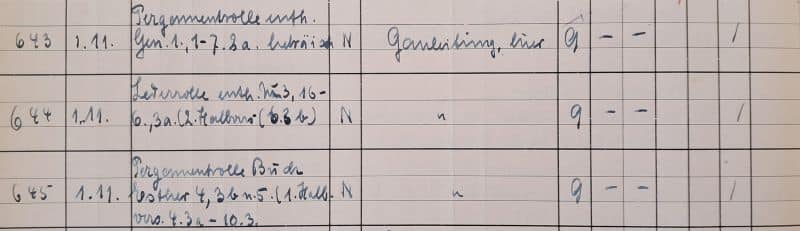 Pergamentrolle enth.
643 1.11. Gen. 1., 1-7. 8a. hebräisch N Gauleitung, hier g - - /
Lederrolle enth. 3, 16-
644 1.11. 6., 3a. (2. Halbvers (6.3b) N " g - - /
Pergamentrolle Buch
645 1.11. Esther 4, 3b u. 5. (1. Halb- N " g - - /
vers. 4.3a - 10.3.